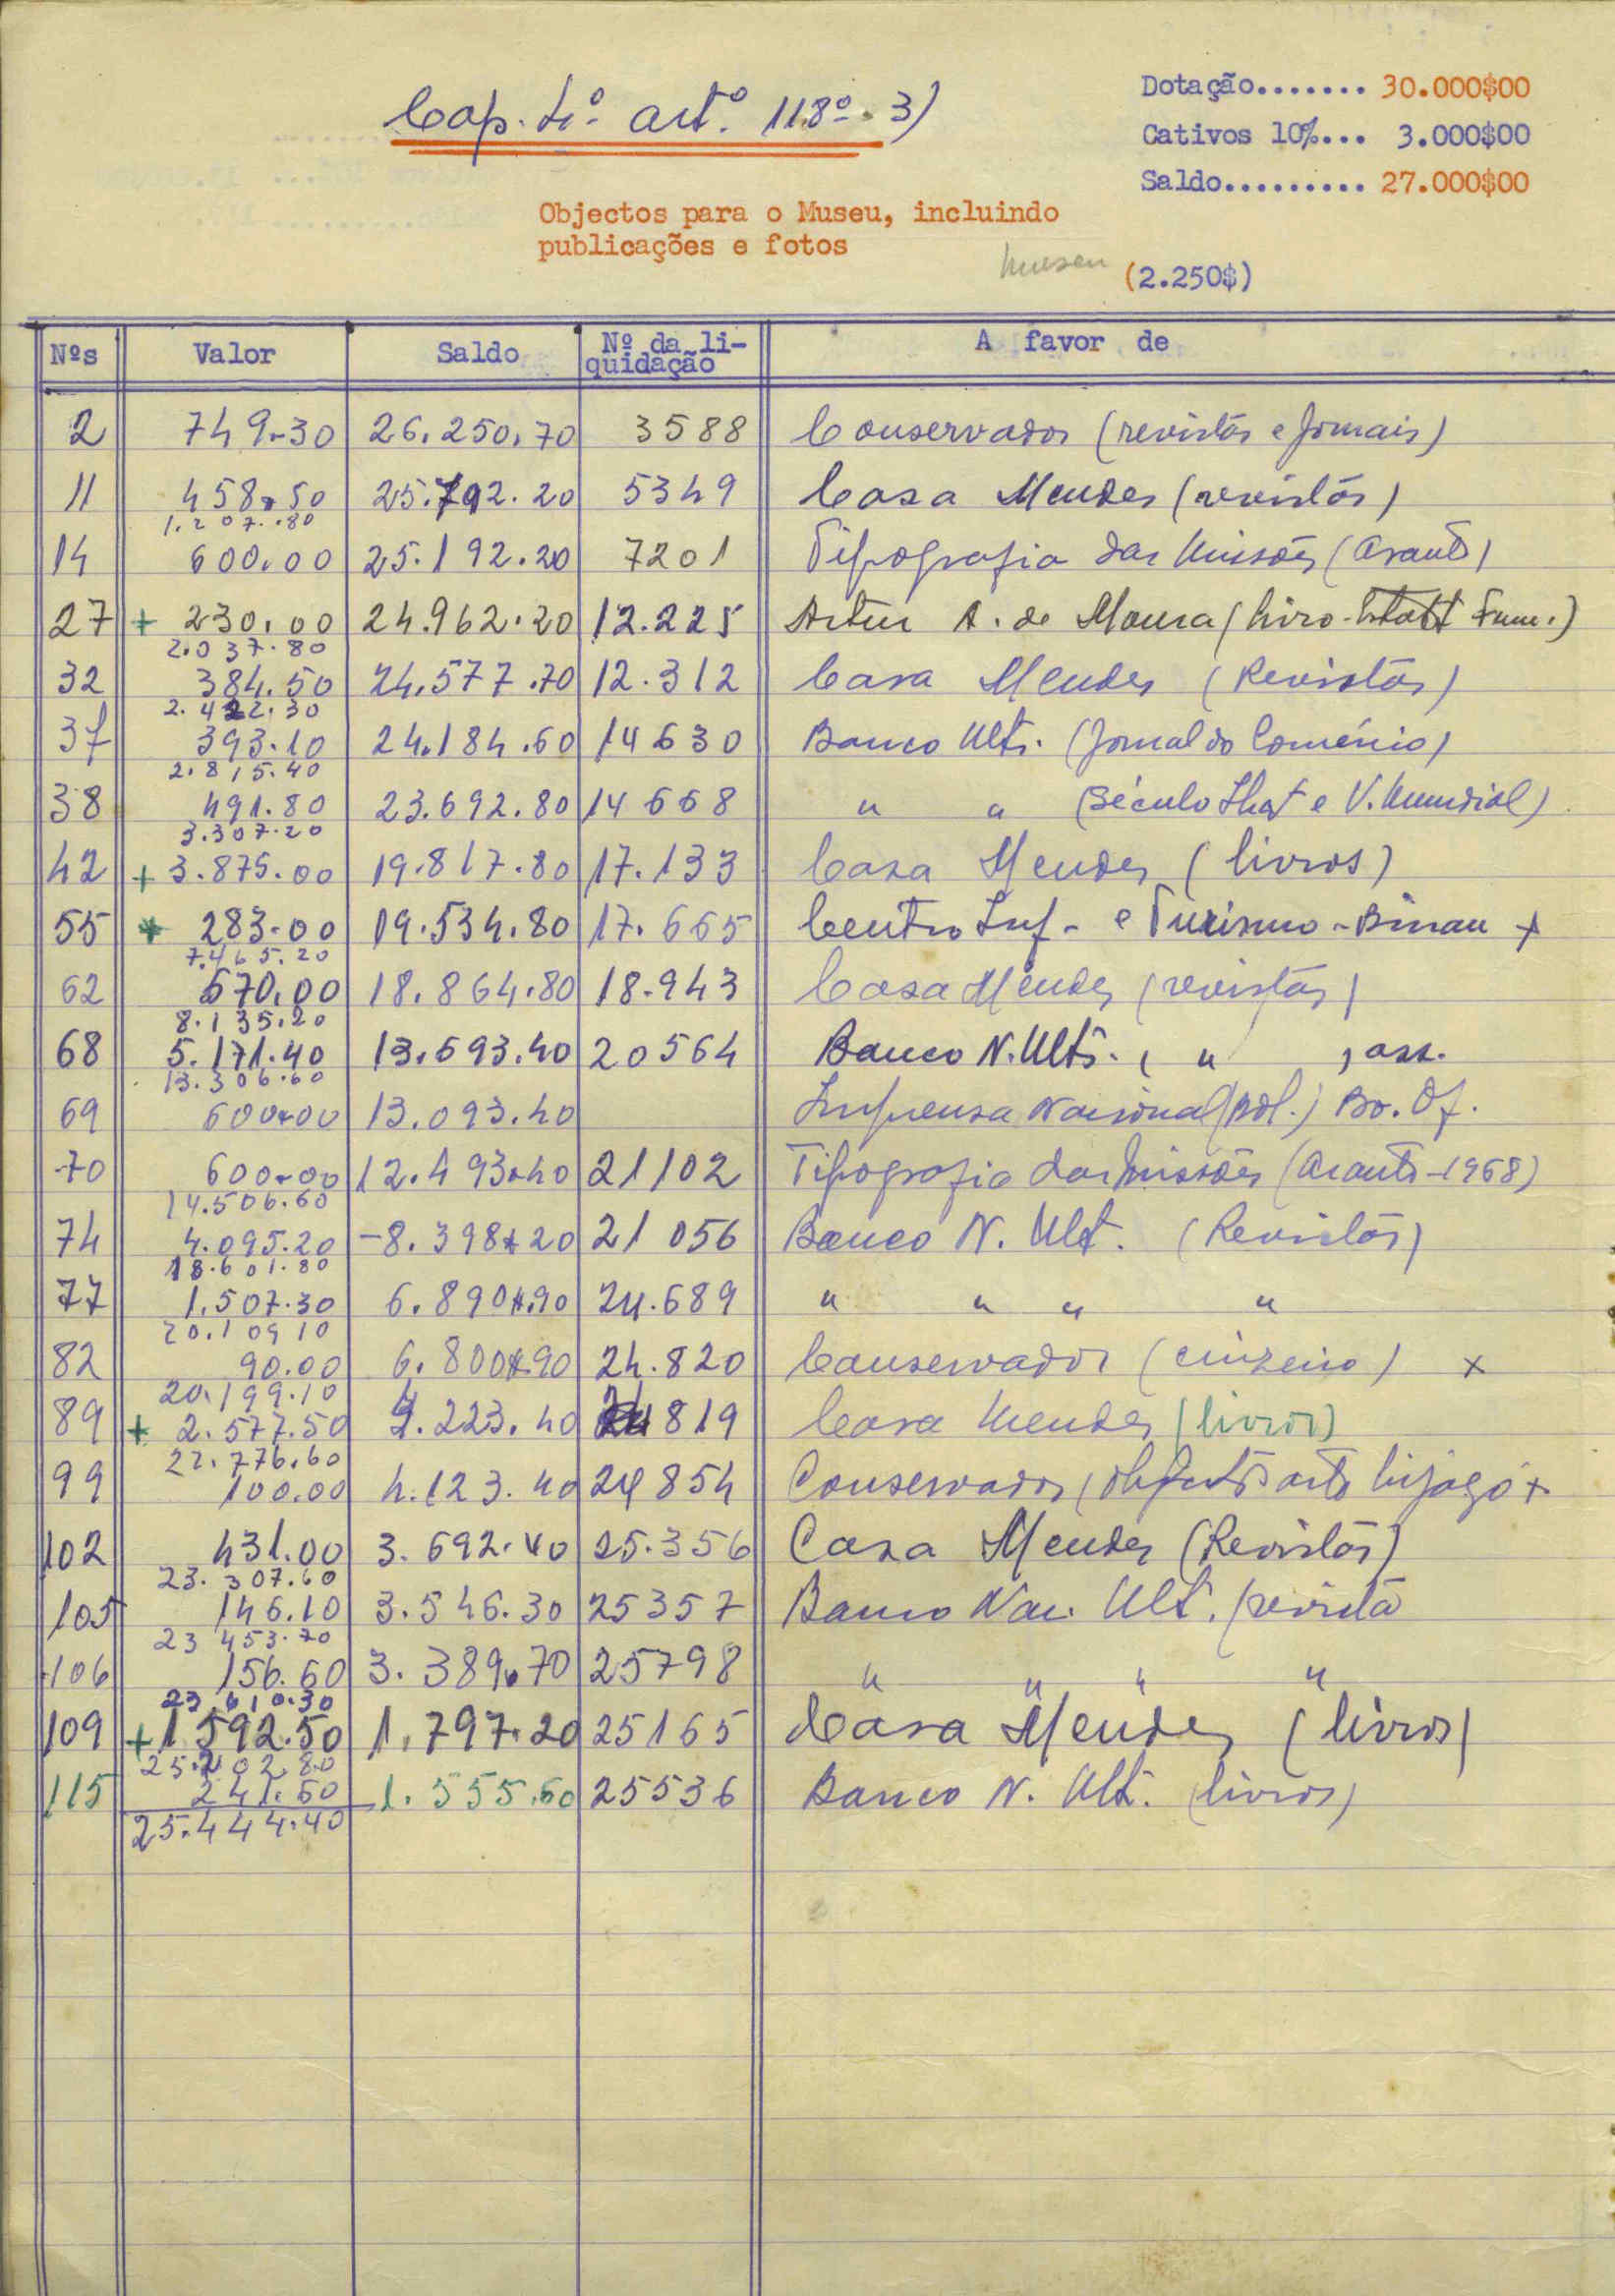 Cap. 4º art.º 118º. 3)
Dotação....... 30.000$00
Cativos 10%... 3.000$00
Saldo......... 27.000$00
Objectos para o Museu, incluindo
publicações e fotos
Museu (2.250$)
Nºs Valor Saldo Nº da li-quidação A favor de
2 749.30 26.250,70 3588 Conservador (revistas e Jornais)
11 458,50 25.792.20 5349 Casa Mendes (revistas)
1.207.80
14 600.00 25.192.20 7201 Tipografia das Missões (Arauto)
27 + 230.00 24.962.20 12.225 Artur A. de Moura (livro
2.037.80
32 384.50 24.577.70 12.312 Casa Mendes (Revistas)
2.422.30
37 393.10 24.184.60 14630 Banco Ultr. (Jornal do Comércio)
2.815.40
38 491.80 23.692.80 14668 " " (Século e V. Mundial)
3.307.20
42 + 3.875.00 19.817.80 17.133 Casa Mendes (livros)
55 + 283.00 19.534.80 17.665 Centro Inf. e Turismo - Bissau +
7.465.20
62 670,00 18.864.80 18.943 Casa Mendes (revistas)
8.135.20
68 5.171.40 13.693.40 20564 Banco N. Ultr. ( " ) ass.
13.306.60
69 600.00 13.093.40 Imprensa Nacional (Bol.) Bo. Of.
70 600.00 12.493.40 21102 Tipografia das Missões (Arauto-1968)
14.506.60
74 4.095.20 -8.398.20 21056 Banco N. Ult. (Revistas)
18.601.80
77 1.507.30 6.890.90 24.689 " " " "
20.109 10
82 90.00 6.800.90 24.820 Conservador (cinzeiro) x
20.199.10
89 + 2.577.50 4.223.40 24819 Casa Mendes (livros)
22.776.60
99 100.00 4.123.40 24854 Conservador (objecto arte bijagó +
102 431.00 3.692.40 25.356 Casa Mendes (Revistas)
23.307.60
105 146.10 3.546.30 25357 Banco Nac. Ult. (revista
23 453.70
106 156.60 3.389.70 25798 " " " "
23.610.30
109 + 1592.50 1.797.20 25165 Casa Mendes (livros)
25.202 80
115 241.60 1.555.60 25536 Banco N. Ult. (livros)
25.444.40